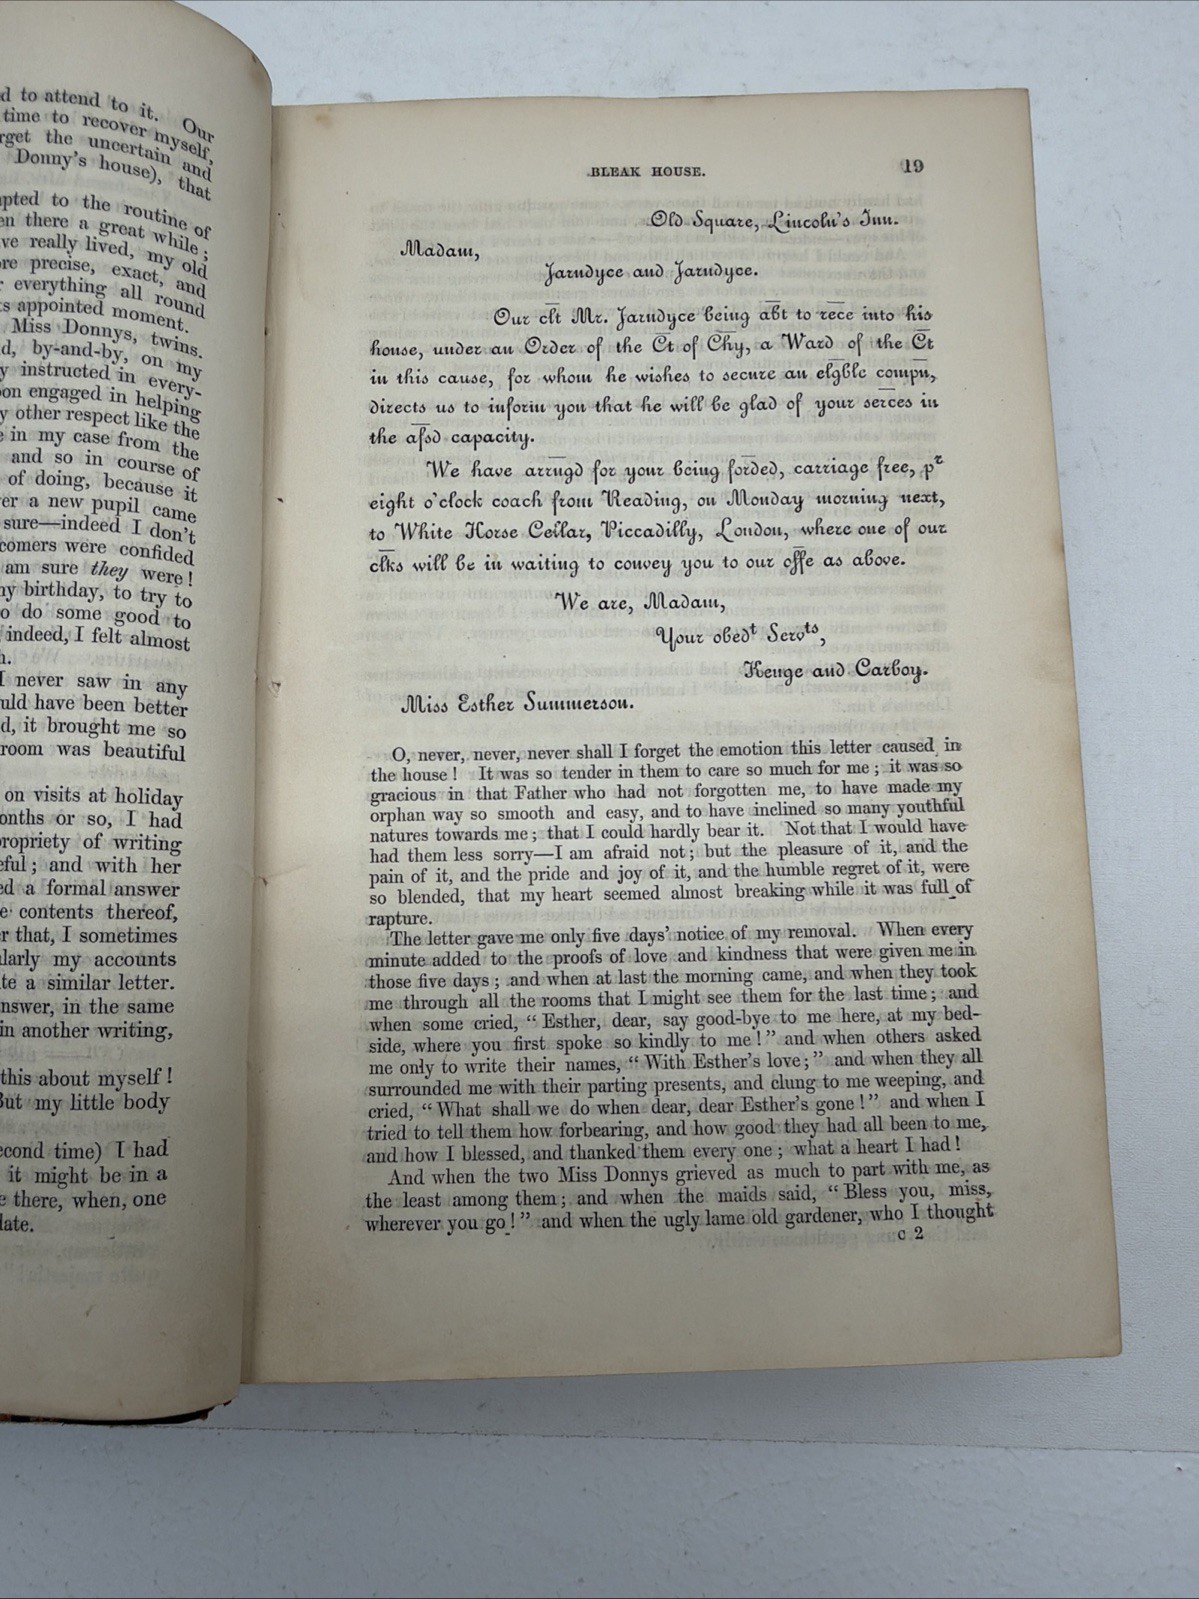 d to attend to it. Our
time to recover myself,
rget the uncertain and
Donny's house), that
apted to the routine of
en there a great while;
ve really lived, my old
re precise, exact, and
r everything all round
ts appointed moment.
Miss Donnys, twins.
d, by-and-by, on my
y instructed in every-
on engaged in helping
y other respect like the
e in my case from the
and so in course of
of doing, because it
er a new pupil came
sure—indeed I don't
comers were confided
am sure they were!
ny birthday, to try to
o do some good to
indeed, I felt almost
h.
I never saw in any
uld have been better
d, it brought me so
room was beautiful
on visits at holiday
onths or so, I had
propriety of writing
eful; and with her
ed a formal answer
e contents thereof,
r that, I sometimes
larly my accounts
te a similar letter.
nswer, in the same
in another writing,
this about myself!
But my little body
econd time) I had
it might be in a
e there, when, one
late.
BLEAK HOUSE. 19
Old Square, Lincoln's Inn.
Madam,
Jarndyce and Jarndyce.
Our clt Mr. Jarndyce being abt to rece into his
house, under an Order of the Ct of Chy, a Ward of the Ct
in this cause, for whom he wishes to secure an elgble compn,
directs us to inform you that he will be glad of your serces in
the afsd capacity.
We have arrngd for your being forded, carriage free, pr
eight o'clock coach from Reading, on Monday morning next,
to White Horse Cellar, Piccadilly, London, where one of our
clks will be in waiting to convey you to our offe as above.
We are, Madam,
Your obedt Servts,
Kenge and Carboy.
Miss Esther Summerson.
O, never, never, never shall I forget the emotion this letter caused in
the house! It was so tender in them to care so much for me; it was so
gracious in that Father who had not forgotten me, to have made my
orphan way so smooth and easy, and to have inclined so many youthful
natures towards me; that I could hardly bear it. Not that I would have
had them less sorry—I am afraid not; but the pleasure of it, and the
pain of it, and the pride and joy of it, and the humble regret of it, were
so blended, that my heart seemed almost breaking while it was full of
rapture.
The letter gave me only five days' notice of my removal. When every
minute added to the proofs of love and kindness that were given me in
those five days; and when at last the morning came, and when they took
me through all the rooms that I might see them for the last time; and
when some cried, "Esther, dear, say good-bye to me here, at my bed-
side, where you first spoke so kindly to me!" and when others asked
me only to write their names, "With Esther's love;" and when they all
surrounded me with their parting presents, and clung to me weeping, and
cried, "What shall we do when dear, dear Esther's gone!" and when I
tried to tell them how forbearing, and how good they had all been to me,
and how I blessed, and thanked them every one; what a heart I had!
And when the two Miss Donnys grieved as much to part with me, as
the least among them; and when the maids said, "Bless you, miss,
wherever you go!" and when the ugly lame old gardener, who I thought
c 2